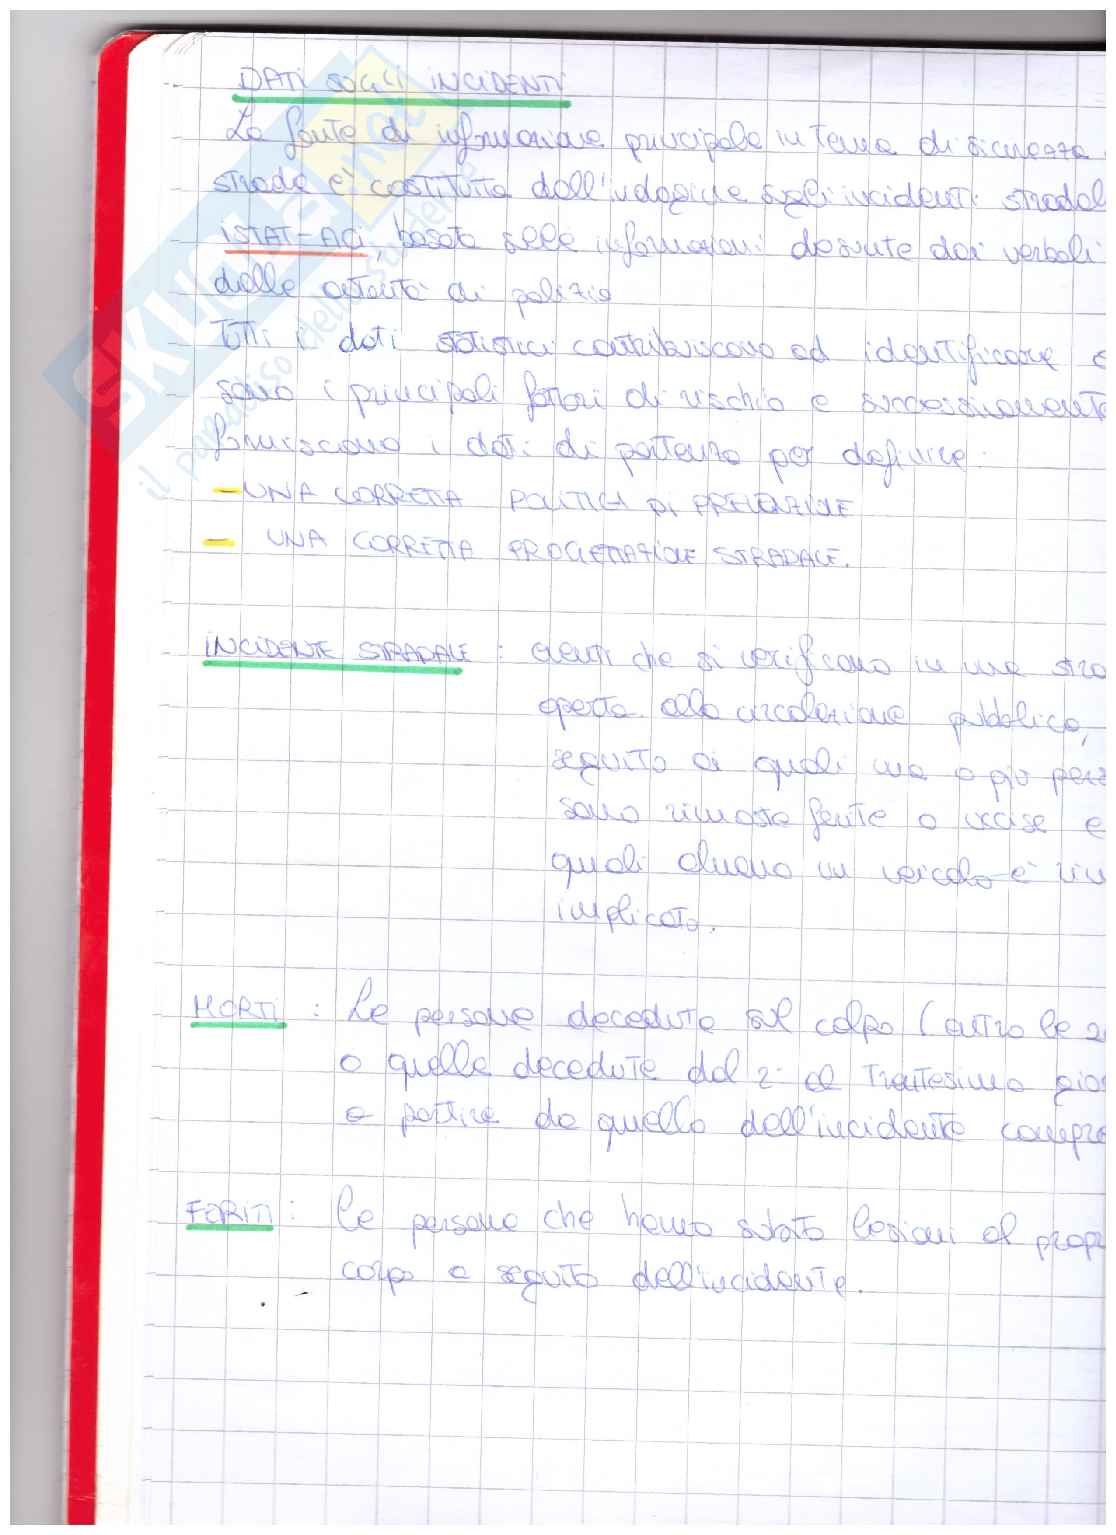 DATI SUGLI INCIDENTI
La fonte di informazione principale in tema di sicurezza
strade è costituita dall'indagine sugli incidenti stradal
ISTAT-ACI, basata sulle informazioni desunte dai verbali
delle autorità di polizia
Tutti i dati statistici contribuiscono ad identificare
sono i principali fattori di rischio e successivamente
forniscono i dati di partenza per definire:
- UNA CORRETTA POLITICA DI PREVENZIONE
- UNA CORRETTA PROGETTAZIONE STRADALE.
INCIDENTE STRADALE : eventi che si verificano in una stra
aperta alla circolazione pubblica,
seguito ai quali una o più pers
sono rimaste ferite o uccise e
quali almeno un veicolo è rim
implicato.
MORTI : Le persone decedute sul colpo (entro le 2
o quelle decedute dal 2° al trentesimo gio
a partire da quello dell'incidente compre
FERITI : le persone che hanno subito lesioni al prop
corpo a seguito dell'incidente.
SKUOLA.net
il paradiso dello studente